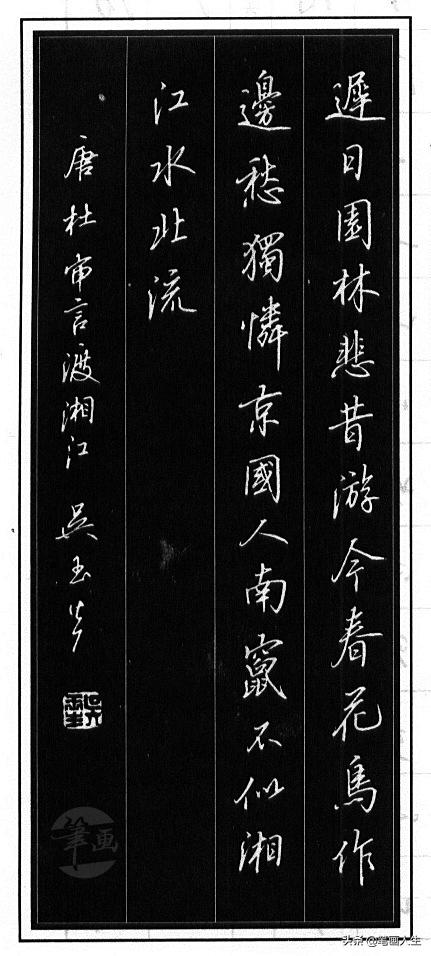 遲日園林悲昔游今春花鳥作
邊愁獨憐京國人南竄不似湘
江水北流
唐杜审言渡湘江 吴玉生
筆画
头条 @笔画人生